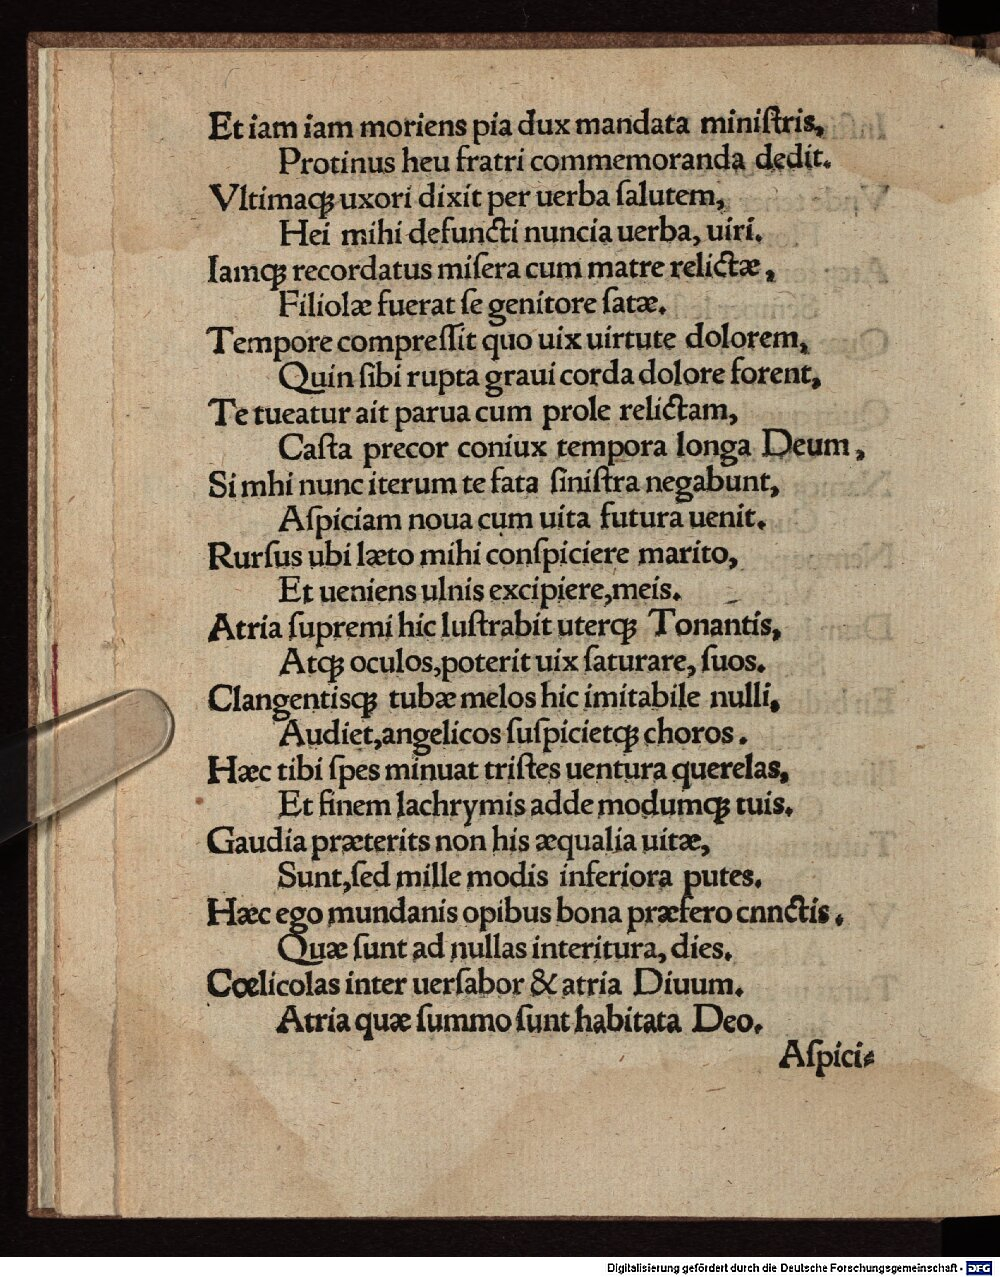 Et iam iam moriens pia dux mandata miniſtris,
Protinus heu fratri commemoranda dedit.
Vltimaqꝫ uxori dixit per uerba ſalutem,
Hei mihi defuncti nuncia uerba, uiri.
Iamqꝫ recordatus miſera cum matre relictæ,
Filiolæ fuerat ſe genitore ſatæ.
Tempore compreſſit quo uix uirtute dolorem,
Quin ſibi rupta graui corda dolore forent,
Te tueatur ait parua cum prole relictam,
Caſta precor coniux tempora longa Deum,
Si mhi nunc iterum te fata ſiniſtra negabunt,
Aſpiciam noua cum uita futura uenit.
Rurſus ubi læto mihi conſpiciere marito,
Et ueniens ulnis excipiere,meis.
Atria ſupremi hic luſtrabit uterqꝫ Tonantis,
Atqꝫ oculos,poterit uix ſaturare, ſuos.
Clangentisqꝫ tubæ melos hic imitabile nulli,
Audiet,angelicos ſuſpicietqꝫ choros.
Hæc tibi ſpes minuat triſtes uentura querelas,
Et finem lachrymis adde modumqꝫ tuis.
Gaudia præterits non his æqualia uitæ,
Sunt,ſed mille modis inferiora putes.
Hæc ego mundanis opibus bona præfero cnnctis.
Quæ ſunt ad nullas interitura, dies.
Cœlicolas inter uerſabor & atria Diuum.
Atria quæ ſummo ſunt habitata Deo.
Aſpici⸗
Digitalisierung gefördert durch die Deutsche Forschungsgemeinschaft - DFG